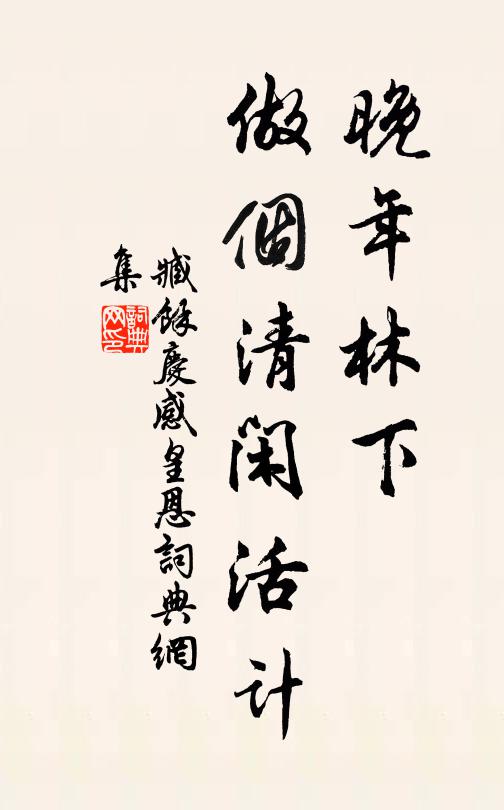 晚年林下
做個清閑活計
臧餘慶感皇恩詞典網
集
詞典
网印